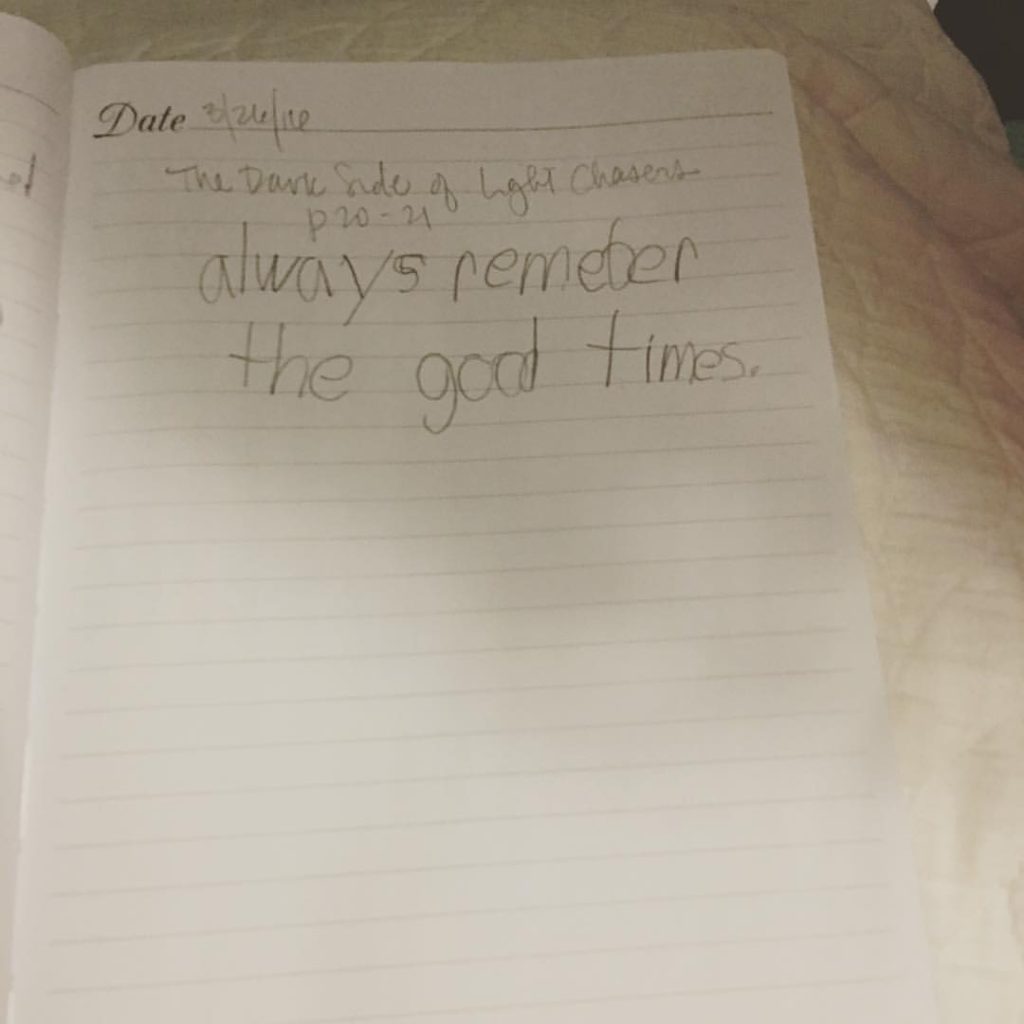 Date 3/26/16
The Dark Side of Light Chasers
p 20 - 21
always remeber
the good times.